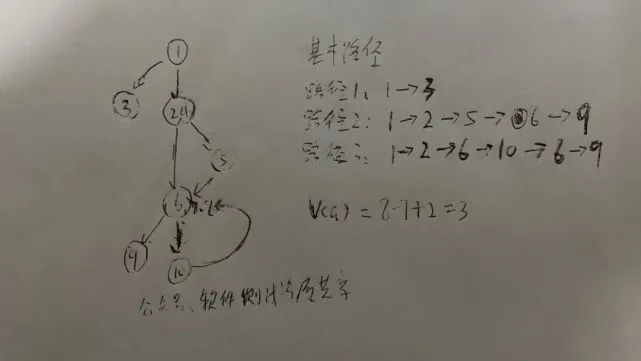 1
3
2,4
5
6,7-2
9
10
基本路径
路径1: 1→3
路径2: 1→2→5→6→9
路径3: 1→2→6→10→6→9
V(G) = 8-7+2=3
公众号、软件测试